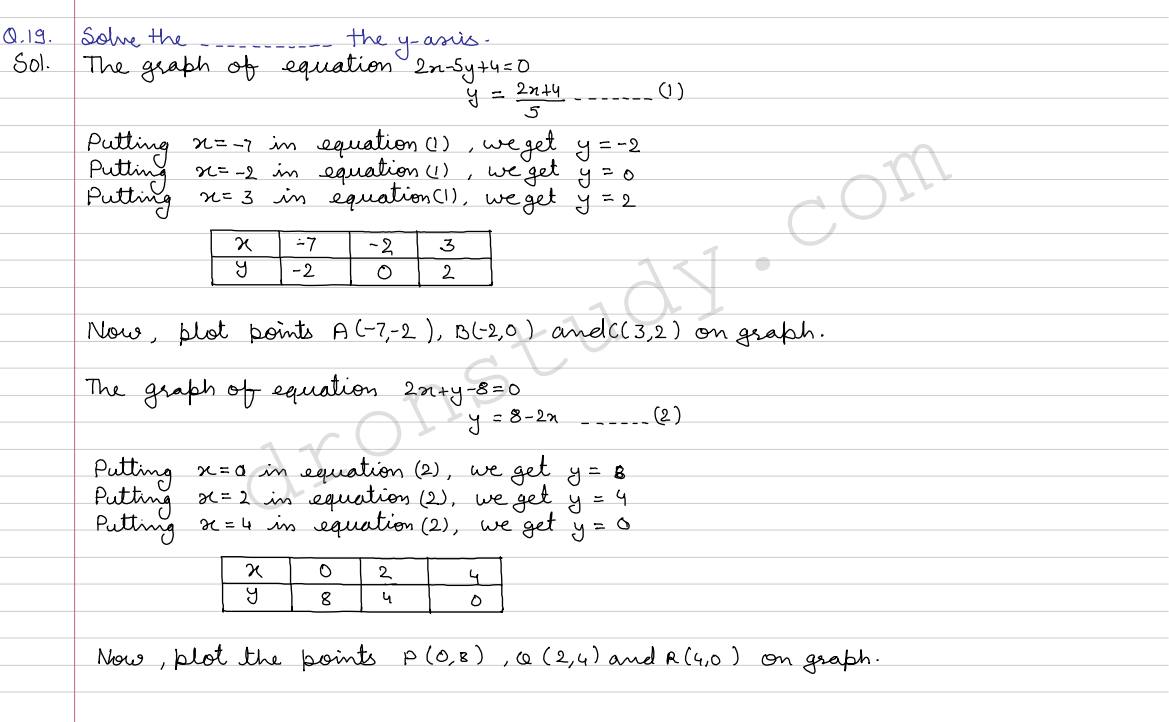 Q.19. Solve the ----------- the y-axis.
Sol. The graph of equation 2x-5y+4=0
y = \frac{2x+4}{5} -------- (1)
Putting x=-7 in equation (1), we get y = -2
Putting x=-2 in equation (1), we get y = 0
Putting x=3 in equation (1), we get y = 2
x -7 -2 3
y -2 0 2
Now, plot points A(-7,-2), B(-2,0) and C(3,2) on graph.
The graph of equation 2x+y-8=0
y = 8-2x ------ (2)
Putting x=0 in equation (2), we get y = 8
Putting x=2 in equation (2), we get y = 4
Putting x=4 in equation (2), we get y = 0
x 0 2 4
y 8 4 0
Now, plot the points P(0,8), Q(2,4) and R(4,0) on graph.
dronstudy.com